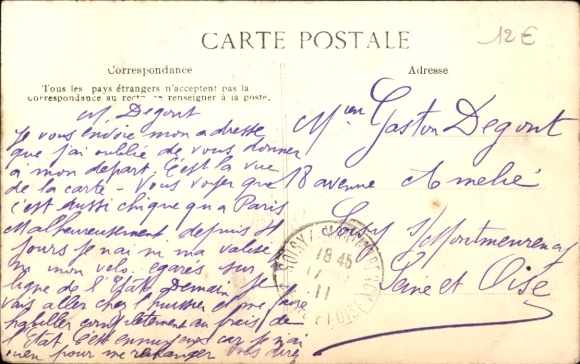 CARTE POSTALE
12€
Correspondance
Adresse
Tous les pays étrangers n'acceptent pas la
correspondance au recto se renseigner à la poste.
M. Degont
Je vous envoie mon adresse
que j'ai oublié de vous donner
a mon depart. C'est la vue
de la carte - Vous voyez que
c'est aussi chique qu'a Paris
Malheureusement depuis
jours je n'ai ni ma valise
ni mon velo, egarés sur
ligne de l'Etat Demain je
vais aller chez l'huissier et me faire
habiller completement au frais de
l'Etat. C'est ennuyeux car je n'ai
rien pour me rechanger
Gaston Degont
18 avenue Amelié
Soisy s/ Montmorency
Seine et Oise
18 45
11